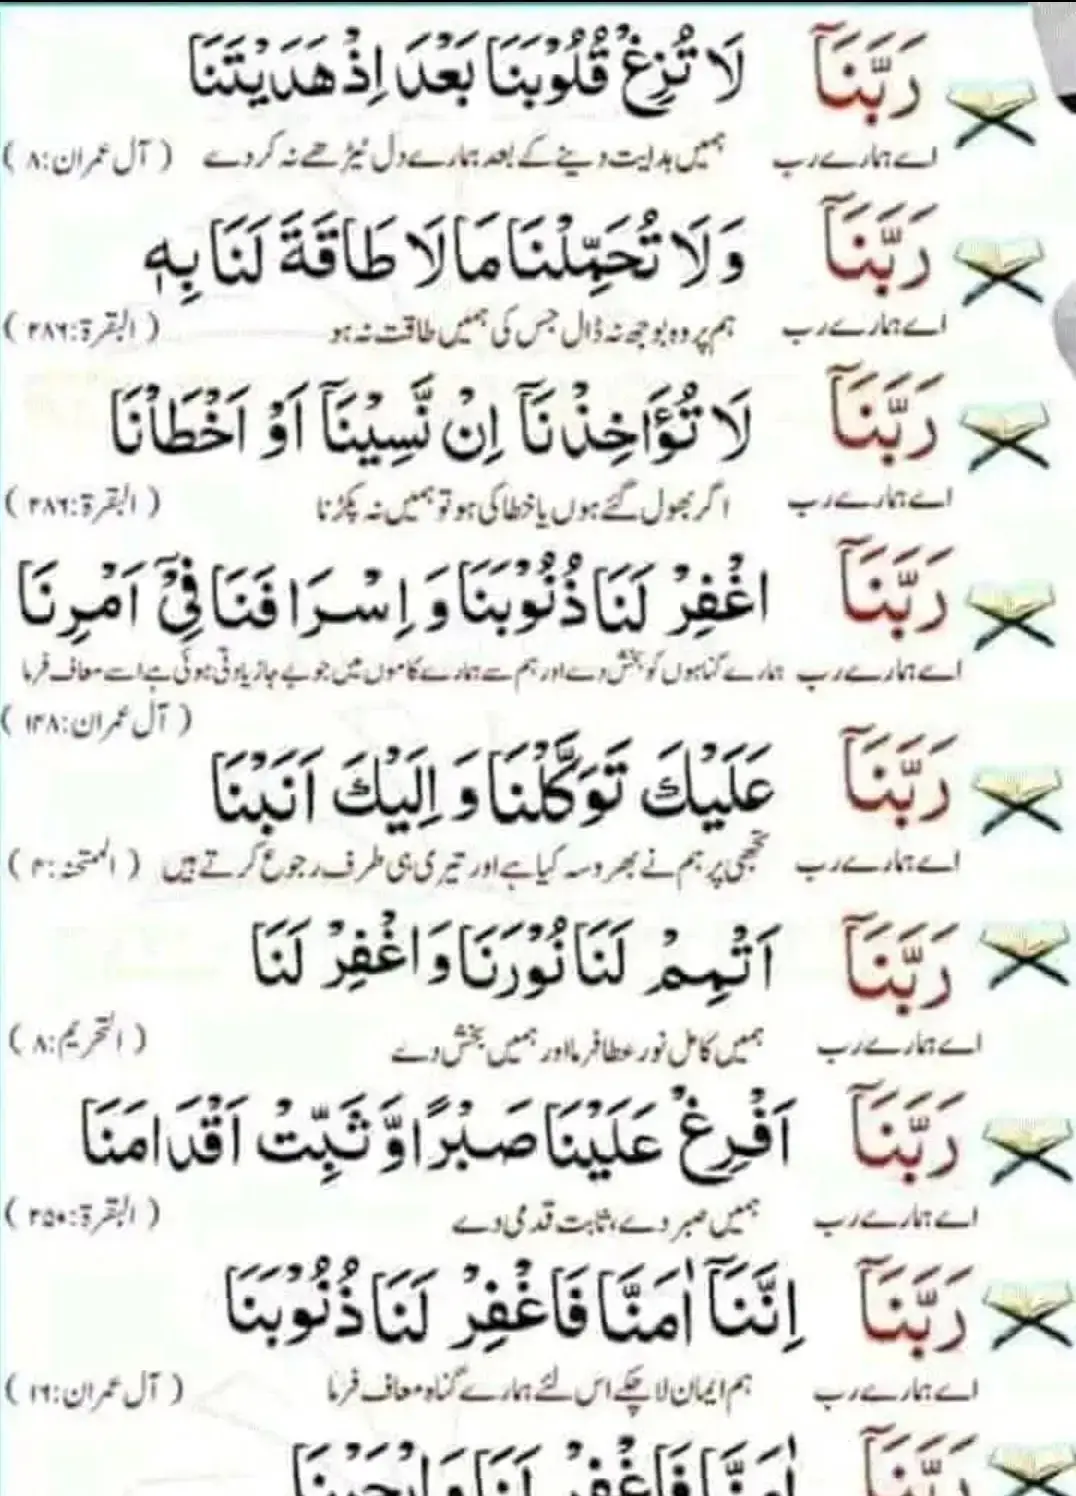 رَبَّنَآ لَا تُزِغْ قُلُوْبَنَا بَعْدَ اِذْ هَدَيْتَنَا
اے ہمارے رب ہمیں ہدایت دینے کے بعد ہمارے دل ٹیڑھے نہ کر دے ( آل عمران:۸ )
رَبَّنَآ وَلَا تُحَمِّلْنَا مَا لَا طَاقَةَ لَنَا بِهٖ
اے ہمارے رب ہم پر وہ بوجھ نہ ڈال جس کی ہمیں طاقت نہ ہو ( البقرة:۲۸۶ )
رَبَّنَآ لَا تُؤَاخِذْنَآ اِنْ نَّسِيْنَآ اَوْ اَخْطَاْنَا
اے ہمارے رب اگر بھول گئے ہوں یا خطا کی ہو تو ہمیں نہ پکڑنا ( البقرة:۲۸۶ )
رَبَّنَآ اغْفِرْ لَنَا ذُنُوْبَنَا وَ اِسْرَافَنَا فِيْٓ اَمْرِنَا
اے ہمارے رب ہمارے گناہوں کو بخش دے اور ہم سے ہمارے کاموں میں جو بے جا زیادتی ہوئی ہے اسے معاف فرما
( آل عمران:۱۴۸ )
رَبَّنَآ عَلَيْكَ تَوَكَّلْنَا وَ اِلَيْكَ اَنَبْنَا
اے ہمارے رب تجھی پر ہم نے بھروسہ کیا ہے اور تیری ہی طرف رجوع کرتے ہیں ( الممتحنہ:۴ )
رَبَّنَآ اَتْمِمْ لَنَا نُوْرَنَا وَاغْفِرْ لَنَا
اے ہمارے رب ہمیں کامل نور عطا فرما اور ہمیں بخش دے ( التحریم:۸ )
رَبَّنَآ اَفْرِغْ عَلَيْنَا صَبْرًا وَّ ثَبِّتْ اَقْدَامَنَا
اے ہمارے رب ہمیں صبر دے، ثابت قدمی دے ( البقرة:۲۵۰ )
رَبَّنَآ اِنَّنَآ اٰمَنَّا فَاغْفِرْ لَنَا ذُنُوْبَنَا
اے ہمارے رب ہم ایمان لا چکے اس لئے ہمارے گناہ معاف فرما ( آل عمران:۱۶ )
رَبَّنَآ اٰمَنَّا فَاغْفِرْ لَنَا وَارْحَمْنَا